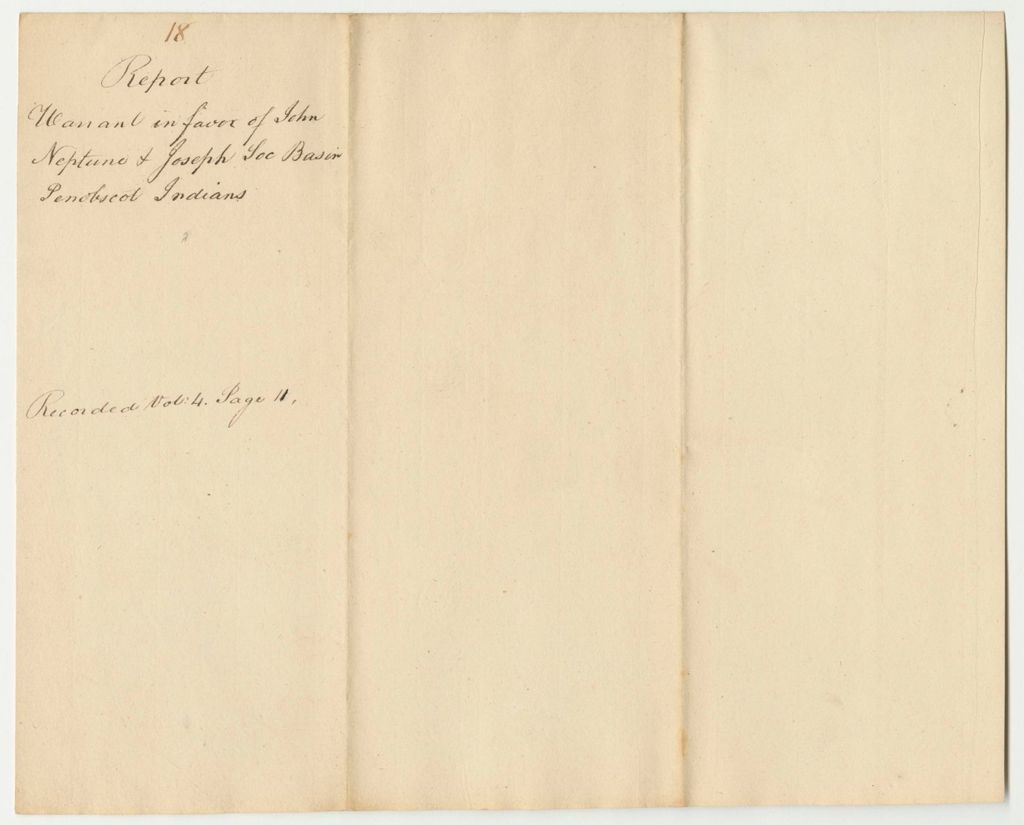 18
Report
Warrant in favor of John
Neptune & Joseph Soc Basin
Penobscot Indians
Recorded Vol: 4. Page 11.